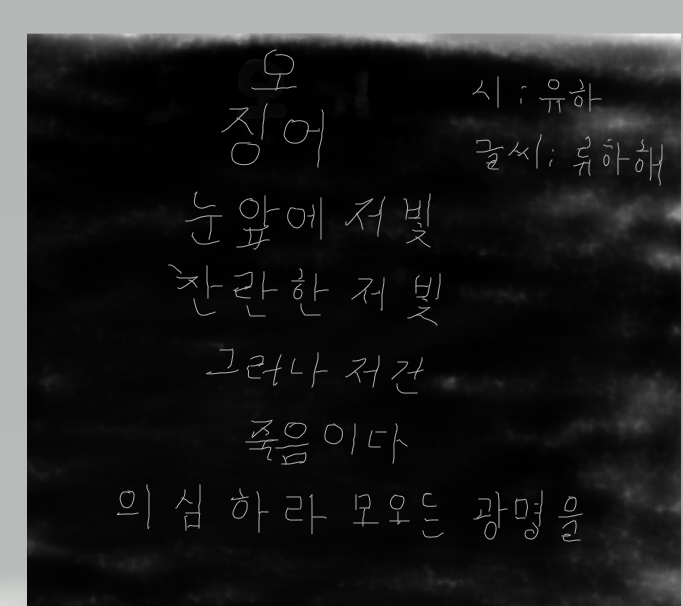 오
징어
시 : 유하
글씨; 류하해
눈앞에 저 빛
찬란한 저 빛
그러나 저건
죽음이다
의심하라 모오든 광명을